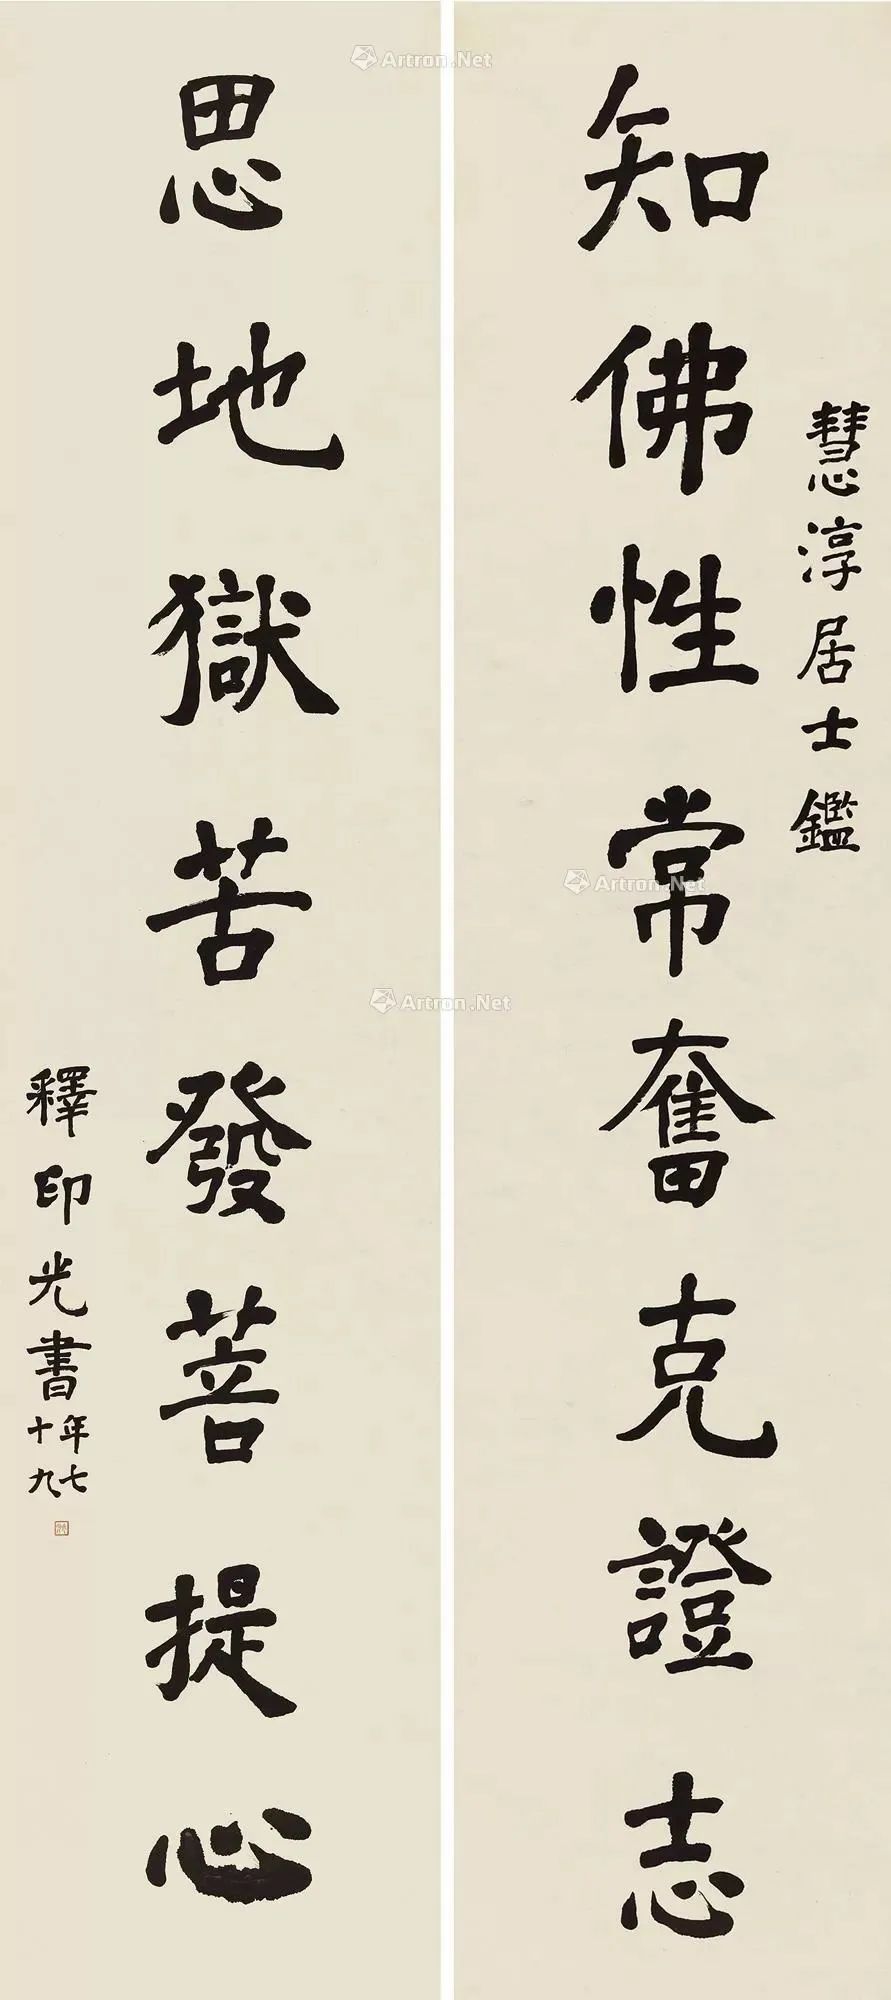 慧淳居士鑑
知佛性常奮克證志
思地獄苦發菩提心
釋印光書
年七
十九
Artron.Net
Artron.Net
Artron.Net